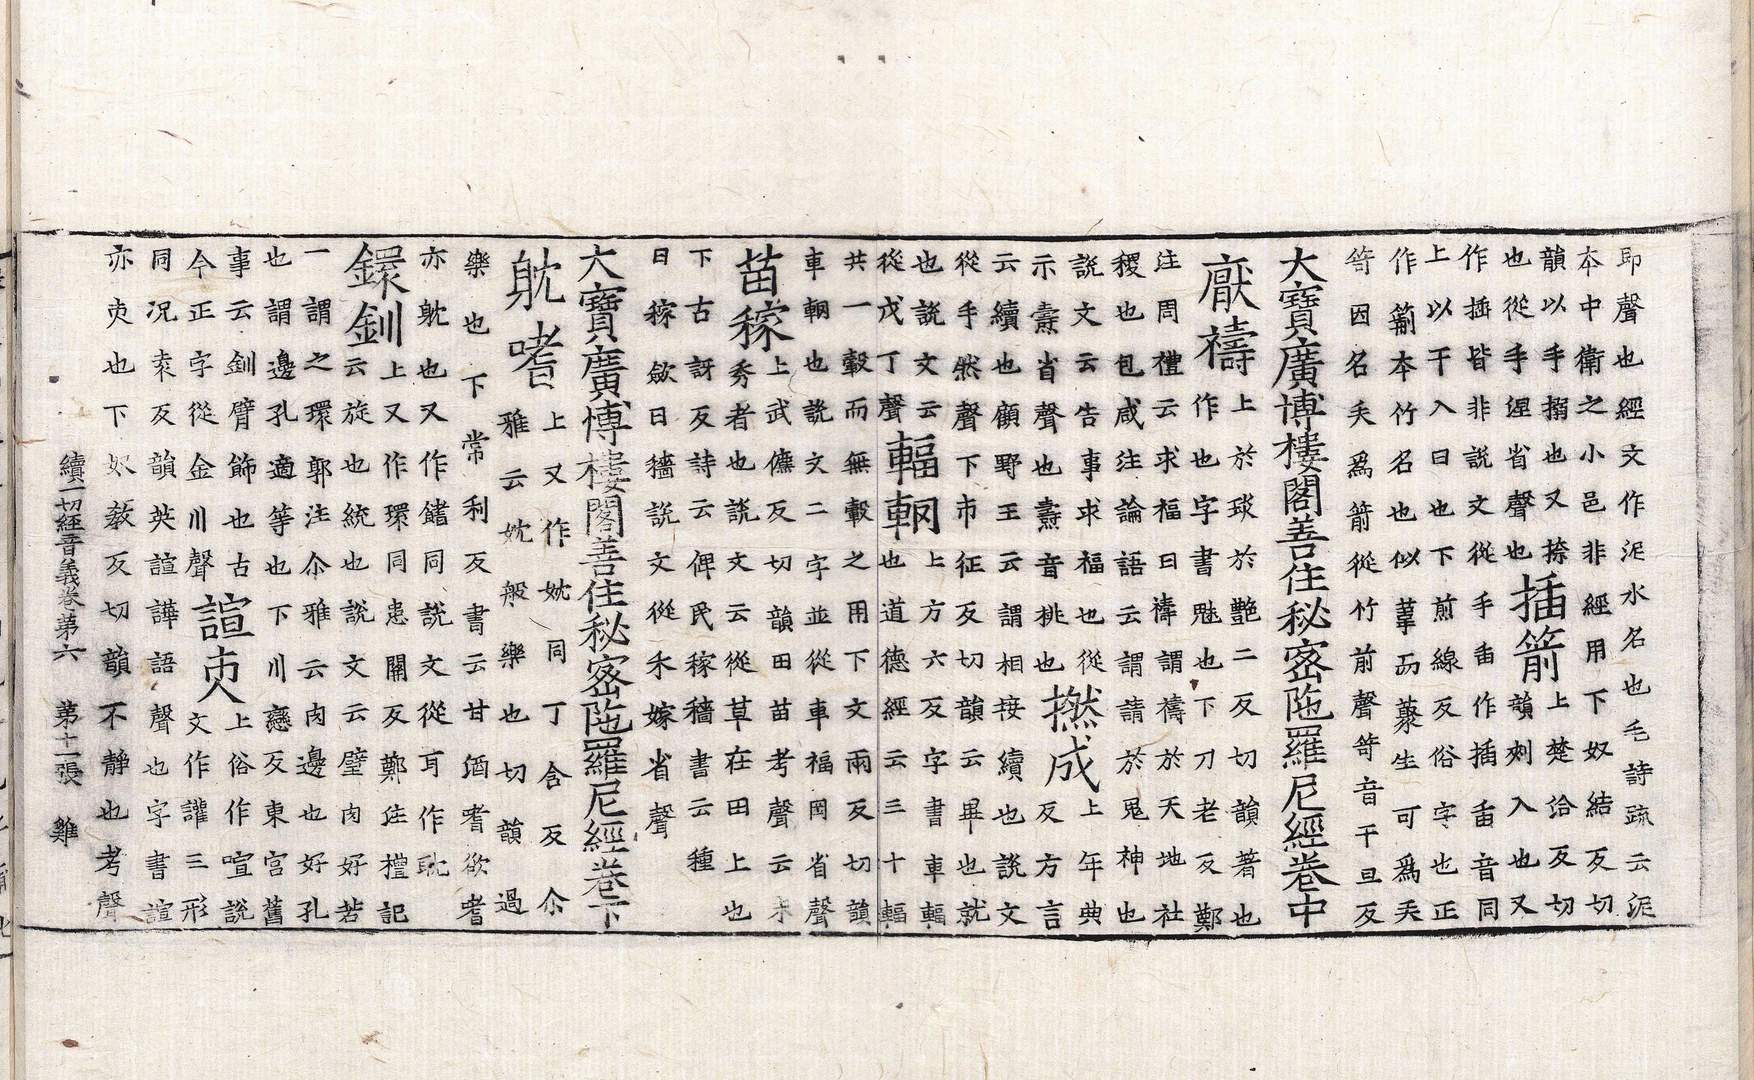 即聲也經文作泥水名也毛詩疏云泥
本中衛之小邑非經用下奴結反切
韻以手搦也又捺
也從手涅省聲也
插箭
上楚洽反切
韻刺入也又
作插皆非說文從手臿作插臿音同
上以干入臼也下煎線反俗字也正
作箭本竹名也似葦而藂生可爲矢
笴因名矢爲箭從竹前聲笴音干旦反
大寶廣博樓閣善住秘密陁羅尼經卷中
厭禱
上於琰於艷二反切韻著也
作也字書魅也下刀老反鄭
注周禮云求福曰禱謂禱於天地社
稷也包咸注論語云謂請於鬼神也
說文云告事求福也從
示壽省聲也壽音桃也
撚成
上年典
反方言
云續也顧野王云謂相接續也說文
從手然聲下市征反切韻云畢也就
也說文云
從戊丁聲
輻輞
上方六反字書車輻
也道德經云三十輻
共一轂而無轂之用下文兩反切韻
車輞也說文二字並從車福罔省聲
苗稼
上武儦反切韻田苗考聲云未
秀者也說文云從草在田上也
下古訝反詩云俾民稼穡書云種
曰稼斂曰穡說文從禾嫁省聲
大寶廣博樓閣善住秘密陁羅尼經卷下
躭嗜
上又作妉同丁含反尒
雅云妉般樂也切韻過
樂也下常利反書云甘酒嗜欲嗜
亦躭也又作饎同說文從耳作耽
鐶釧
上又作環同患關反鄭注禮記
云旋也統也說文云璧肉好若
一謂之環郭注尒雅云肉邊也好孔
也謂邊孔適等也下川戀反東宮舊
事云釧臂飾也古
今正字從金川聲
諠
上俗作喧說
文作讙三形
同況袁反韻英諠譁語聲也字書諠
亦也下奴教反切韻不靜也考聲
續一切經音義卷第六 第十一張 雞